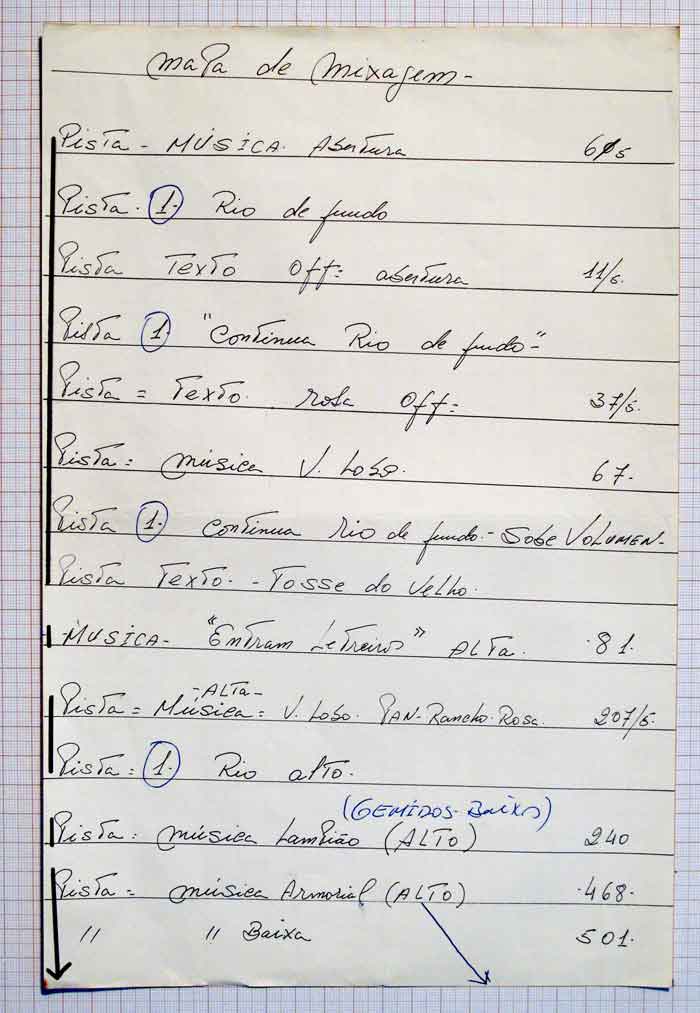 Mapa de Mixagem-
Pista - MÚSICA. Abertura
Pista. 1. Rio de fundo
Pista Texto Off= abertura 11/s.
Pista 1. "Continua Rio de fundo"-
Pista = Texto. rosa Off= 37/s.
Pista: música V. Lobo. 67.
Pista 1. Continua rio de fundo.- Sobe VOLUMEN-
Pista Texto. - Tosse do Velho.
-MUSICA- "Entram Letreiros" ALTA. .81.
-ALTA-
Pista = Música = V. Lobo. PAN-Rancho. Rosa. 207/s.
Pista: 1. Rio alto.
(GEMIDOS-Baixo)
Pista: música Lampião (ALTO) 240
Pista = música Armorial (ALTO) .468.
" " Baixa 501.